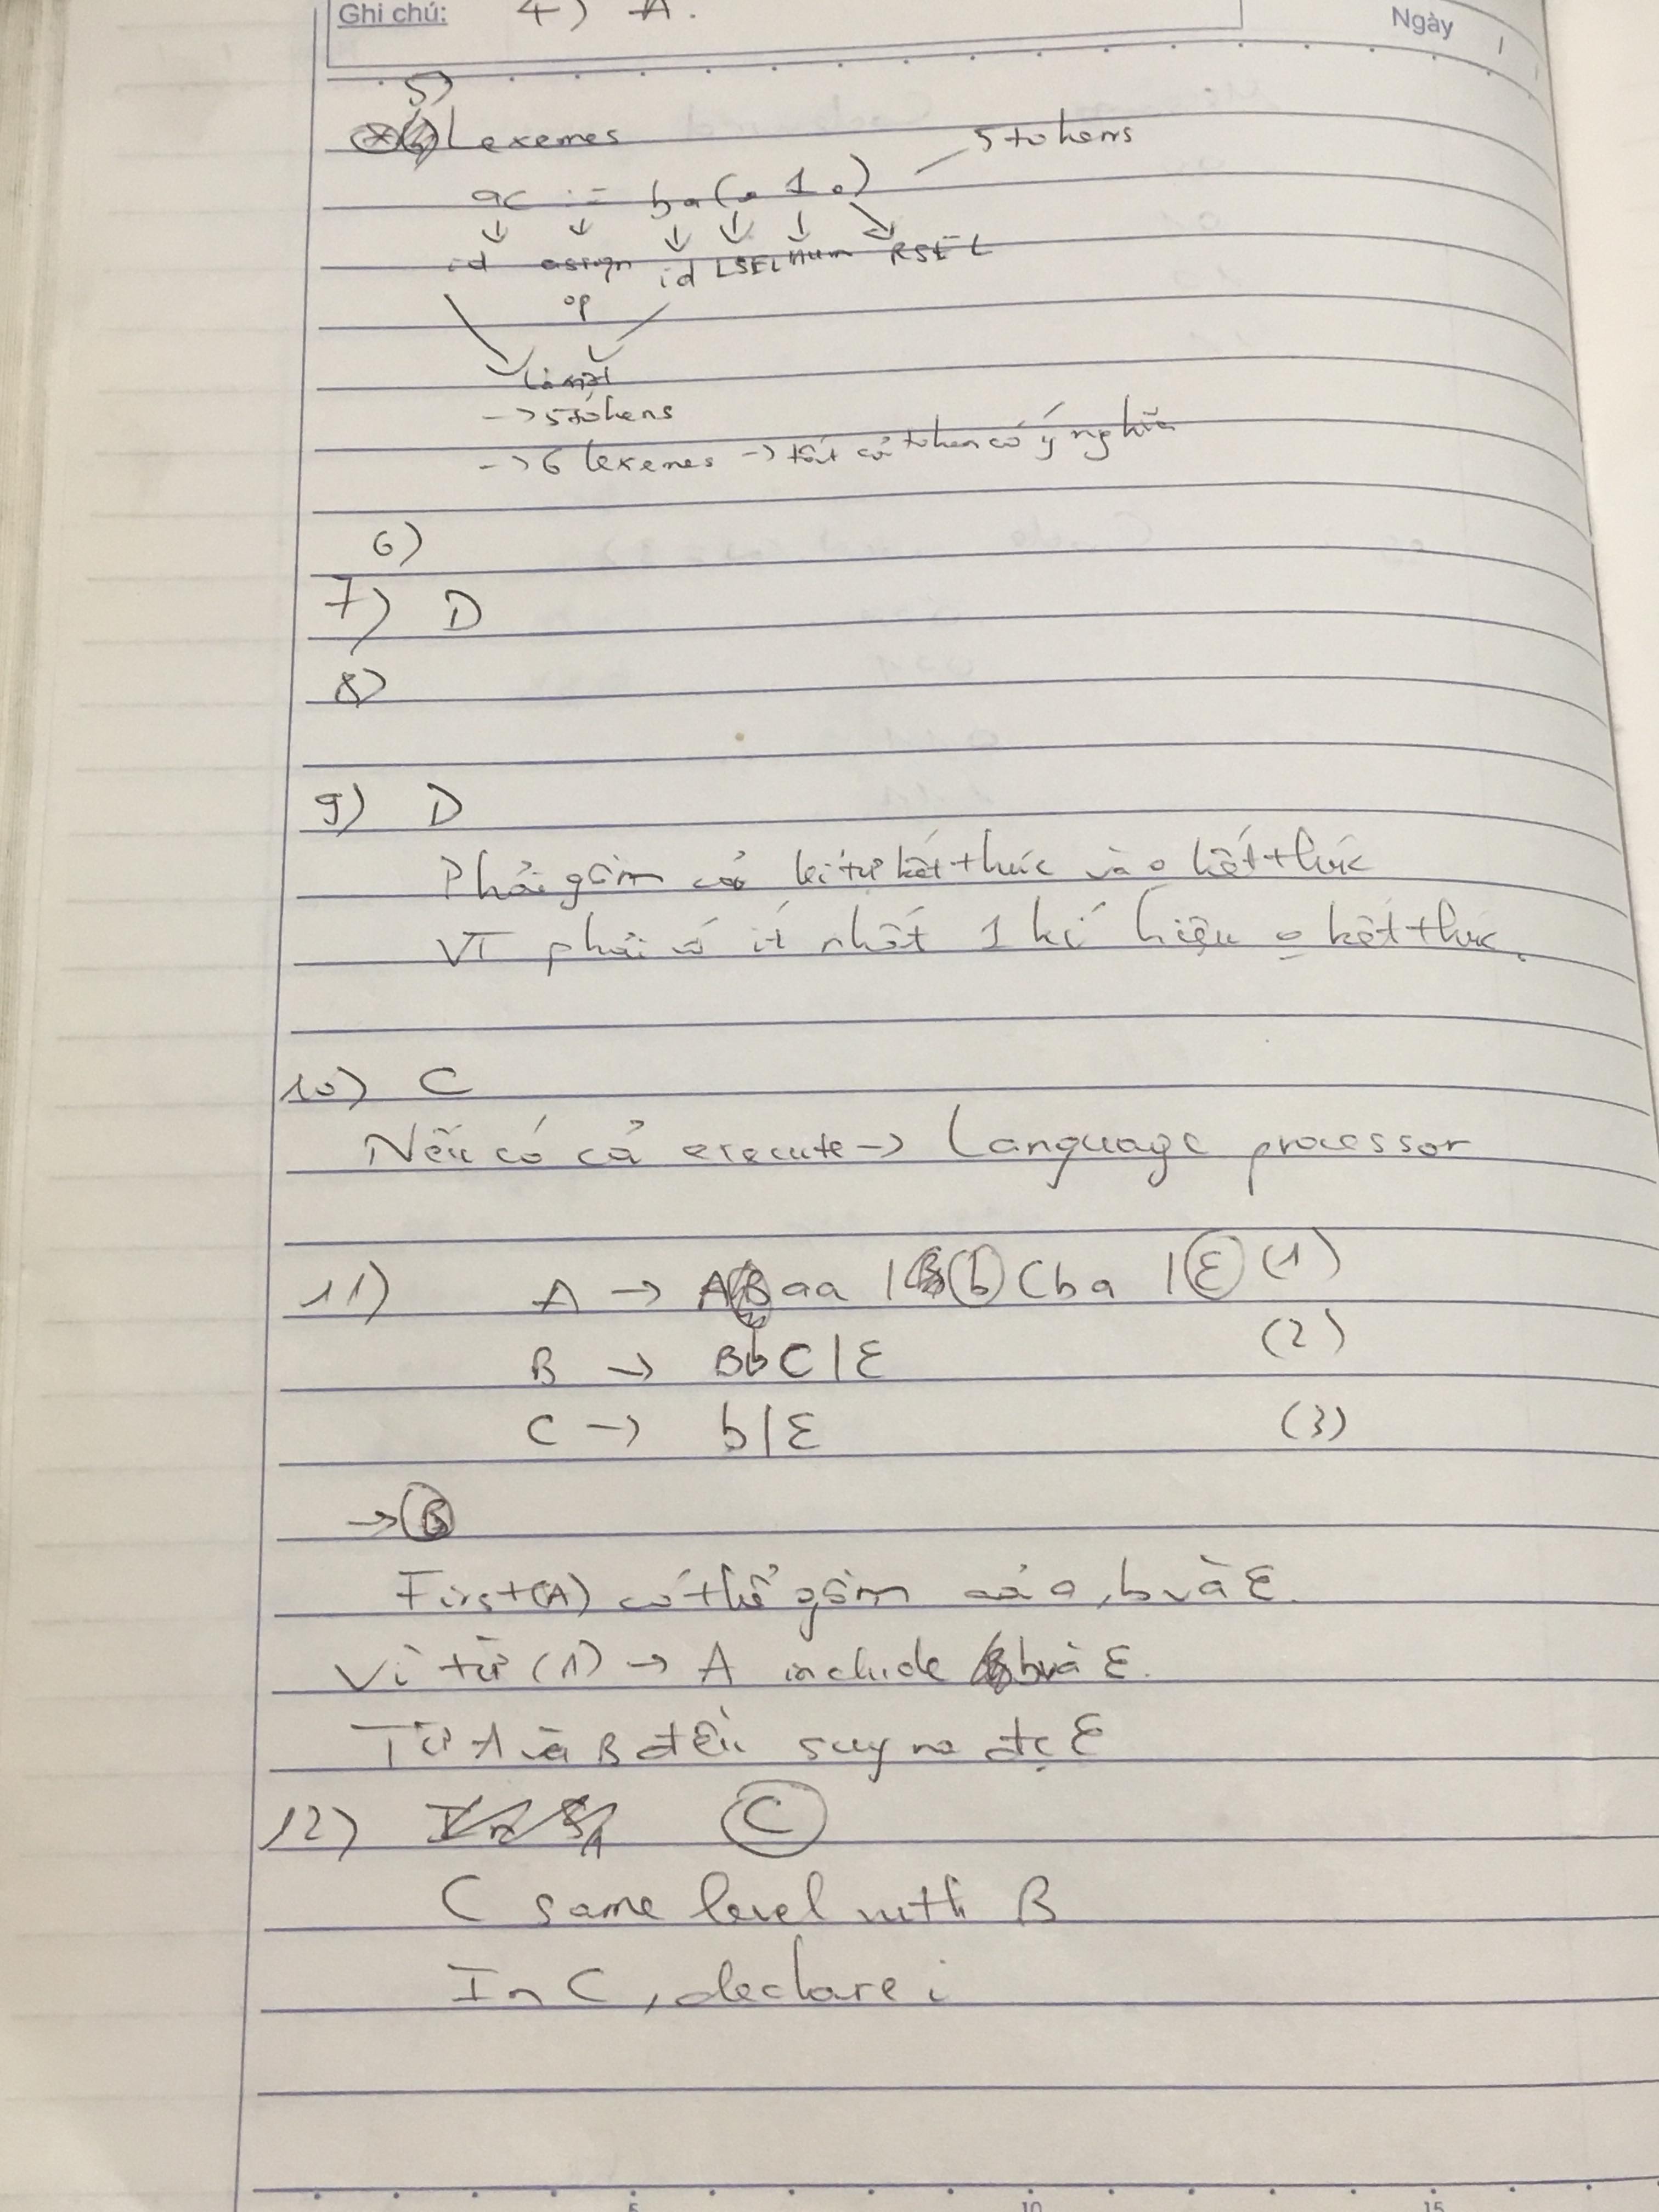 Ghi chú: 4) A.
Ngày /
5)
Lexemes
ac := ba(. 1 .) — 5 tokens
id assign id LSEL num RSEL
op
là một
-> 5 tokens
-> 6 lexemes -> tất cả token có ý nghĩa
6)
7) D
8)
9) D
Phải gồm cả kí tự kết thúc và o kết thúc
VT phải có ít nhất 1 kí hiệu o kết thúc.
10) C
Nếu có cả execute -> Language processor
11) A -> Aaa | bCba | ε (1)
B -> BbC | ε (2)
C -> b | ε (3)
-> B
First(A) có thể gồm cả a, b và ε.
Vì từ (1) -> A include b và ε.
Từ A và B đều suy ra đc ε
12) C
C same level with B
In C, declare i
5 10 15